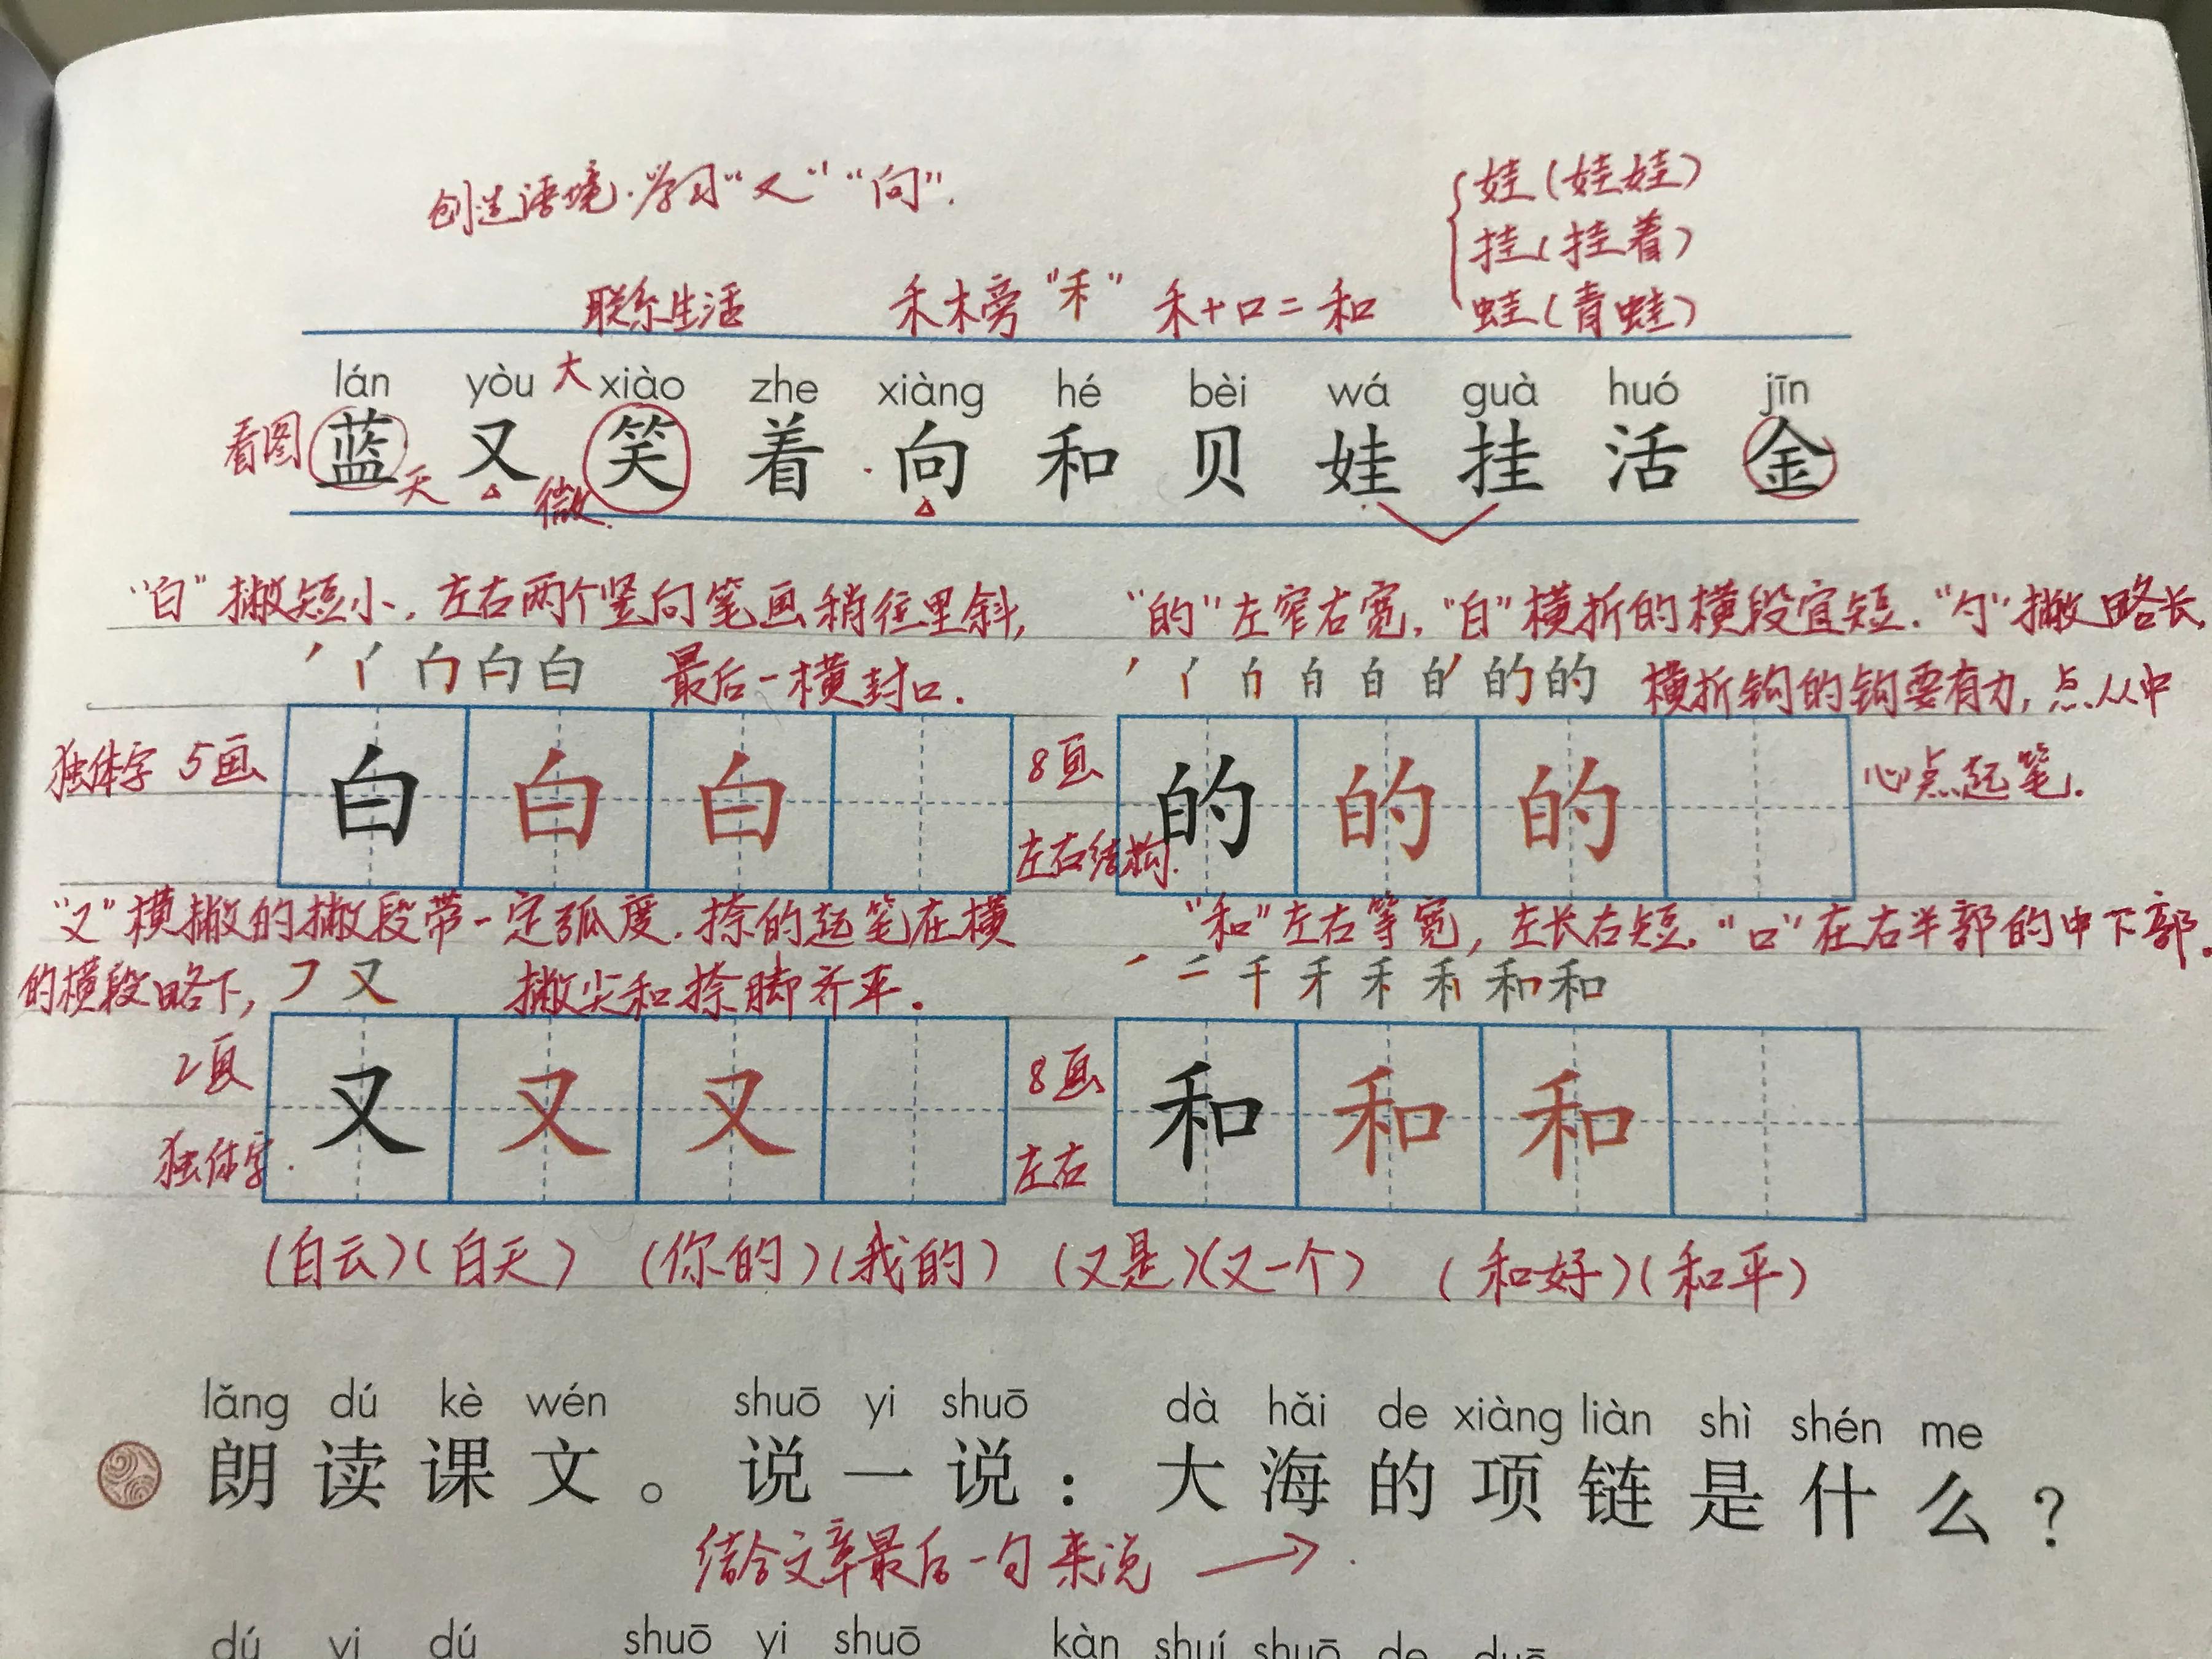 创造语境.学习“又”“向”.
娃(娃娃)
挂(挂着)
蛙(青蛙)
联系生活 禾木旁“禾” 禾+口=和
lán yòu 大 xiào zhe xiàng hé bèi wá guà huó jīn
看图 蓝 又 笑 着 向 和 贝 娃 挂 活 金
天 微
“白”撇短小,左右两个竖向笔画稍往里斜,
最后一横封口.
“的”左窄右宽,“白”横折的横段宜短.“勺”撇略长,
白 的 的 横折钩的钩要有力,点从中
独体字 5画 白 白 白
8画 的 的 的 心点起笔.
左右结构.
“又”横撇的撇段带一定弧度.捺的起笔在横
的横段略下, 又 撇尖和捺脚齐平.
“和”左右等宽,左长右短.“口”在右半部的中下部.
千 禾 禾 和
2画 又 又 又
独体字.
8画 和 和 和
左右
(白云)(白天) (你的)(我的) (又是)(又一个) (和好)(和平)
lǎng dú kè wén shuō yi shuō dà hǎi de xiàng liàn shì shén me
朗读课文。说一说:大海的项链是什么?
结合文章最后一句来说 →
dú yi dú shuō yi shuō kàn shuí shuō de duō